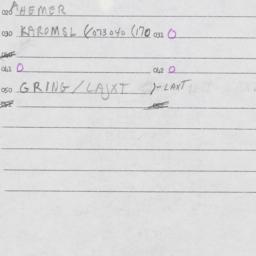 020 AHEMER
030 KAROMSL (/073040 (170 031 0
040
041 0 042 0
050 GRING/LAJXT )-LAXT
052